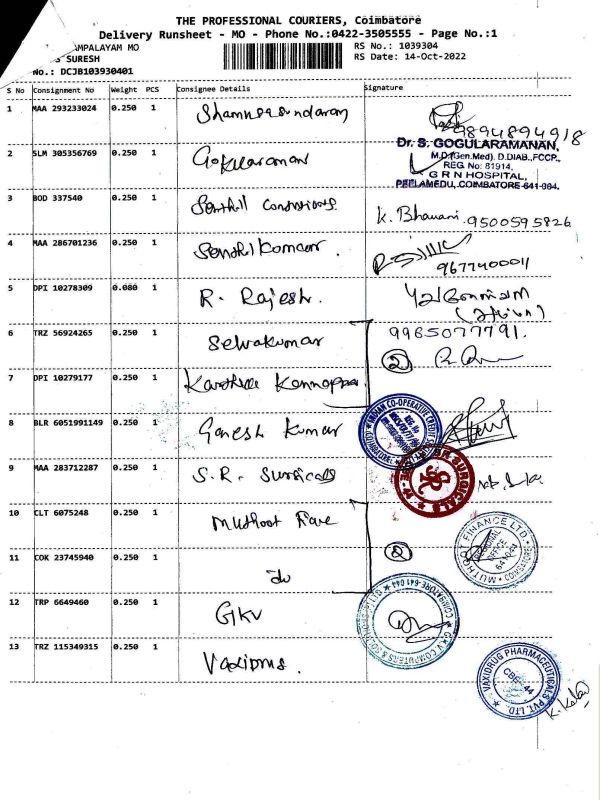 THE PROFESSIONAL COURIERS, Coimbatore
Delivery Runsheet - MO - Phone No.:0422-3505555 - Page No.:1
AMPALAYAM MO
RS No.: 1039304
S SURESH
RS Date: 14-Oct-2022
No.: DCJB103930401
S No Consignment No Weight PCS Consignee Details Signature
1 MAA 293233024 0.250 1 Shamugasundaram
9894894918
Dr. S. GOGULARAMANAN,
M.D.(Gen.Med). D.DIAB.,FCCP.,
REG. No: 81914,
G R N HOSPITAL,
PEELAMEDU, COIMBATORE-641 004.
2 SLM 305356769 0.250 1 Gokularaman
3 BOD 337540 0.250 1 Senthil K. Bhavani 9500595826
4 MAA 286701236 0.250 1 Senthil Kumaar.
9677400011
5 DPI 10278309 0.080 1 R. Rajesh.
6 TRZ 56924265 0.250 1 Selvakumar 9965077791.
2
7 DPI 10279177 0.250 1 Karthik Kannappa
8 BLR 6051991149 0.250 1 Ganesh Kumar
INDIAN CO-OPERATIVE CREDIT
9 MAA 283712287 0.250 1 S.R. Surgicals
S.R. SURGICALS
10 CLT 6075248 0.250 1 Muthoot Fine
2
MUTHOOT FINANCE LTD.
REGIONAL OFFICE
641 044
COIMBATORE
11 COK 23745940 0.250 1 do
12 TRP 6649460 0.250 1 GKV
G.K.V COMPUTERS &
COIMBATORE-641 044
13 TRZ 115349315 0.250 1 Vaxidrug.
VAXIDRUG PHARMACEUTICALS PVT. LTD.
CBE-44